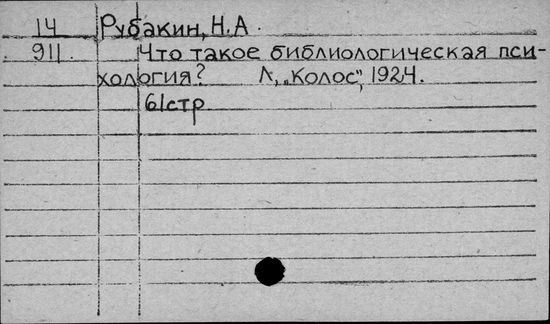 14 Рубакин, Н.А.
911. Что такое библиологическая пси-
хология? Л, „Колос", 1924.
61стр